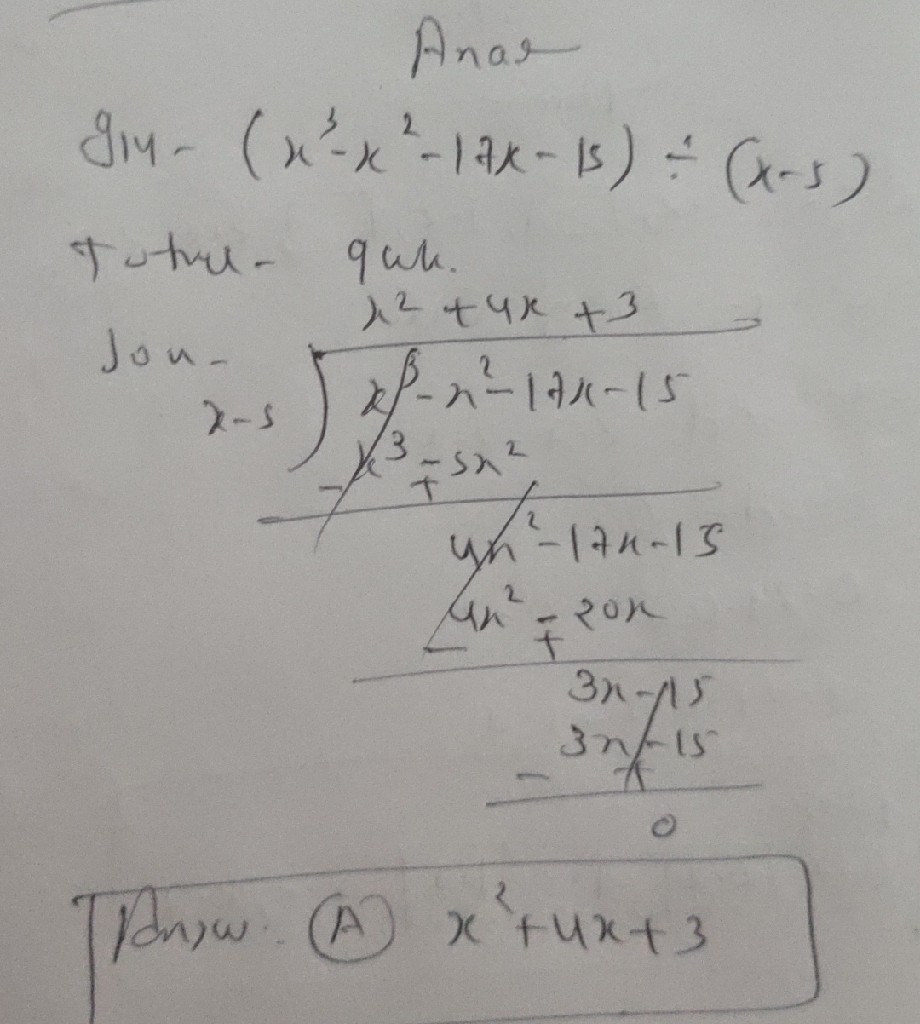 Ans
Giv- (x³-x²-17x-15) ÷ (x-5)
x² +4x +3
x-5 ) x³-x²-17x-15
x³ - 5x²
- +
4x²-17x-15
4x² - 20x
- +
3x-15
3x-15
- +
0
Answ. (A) x²+4x+3